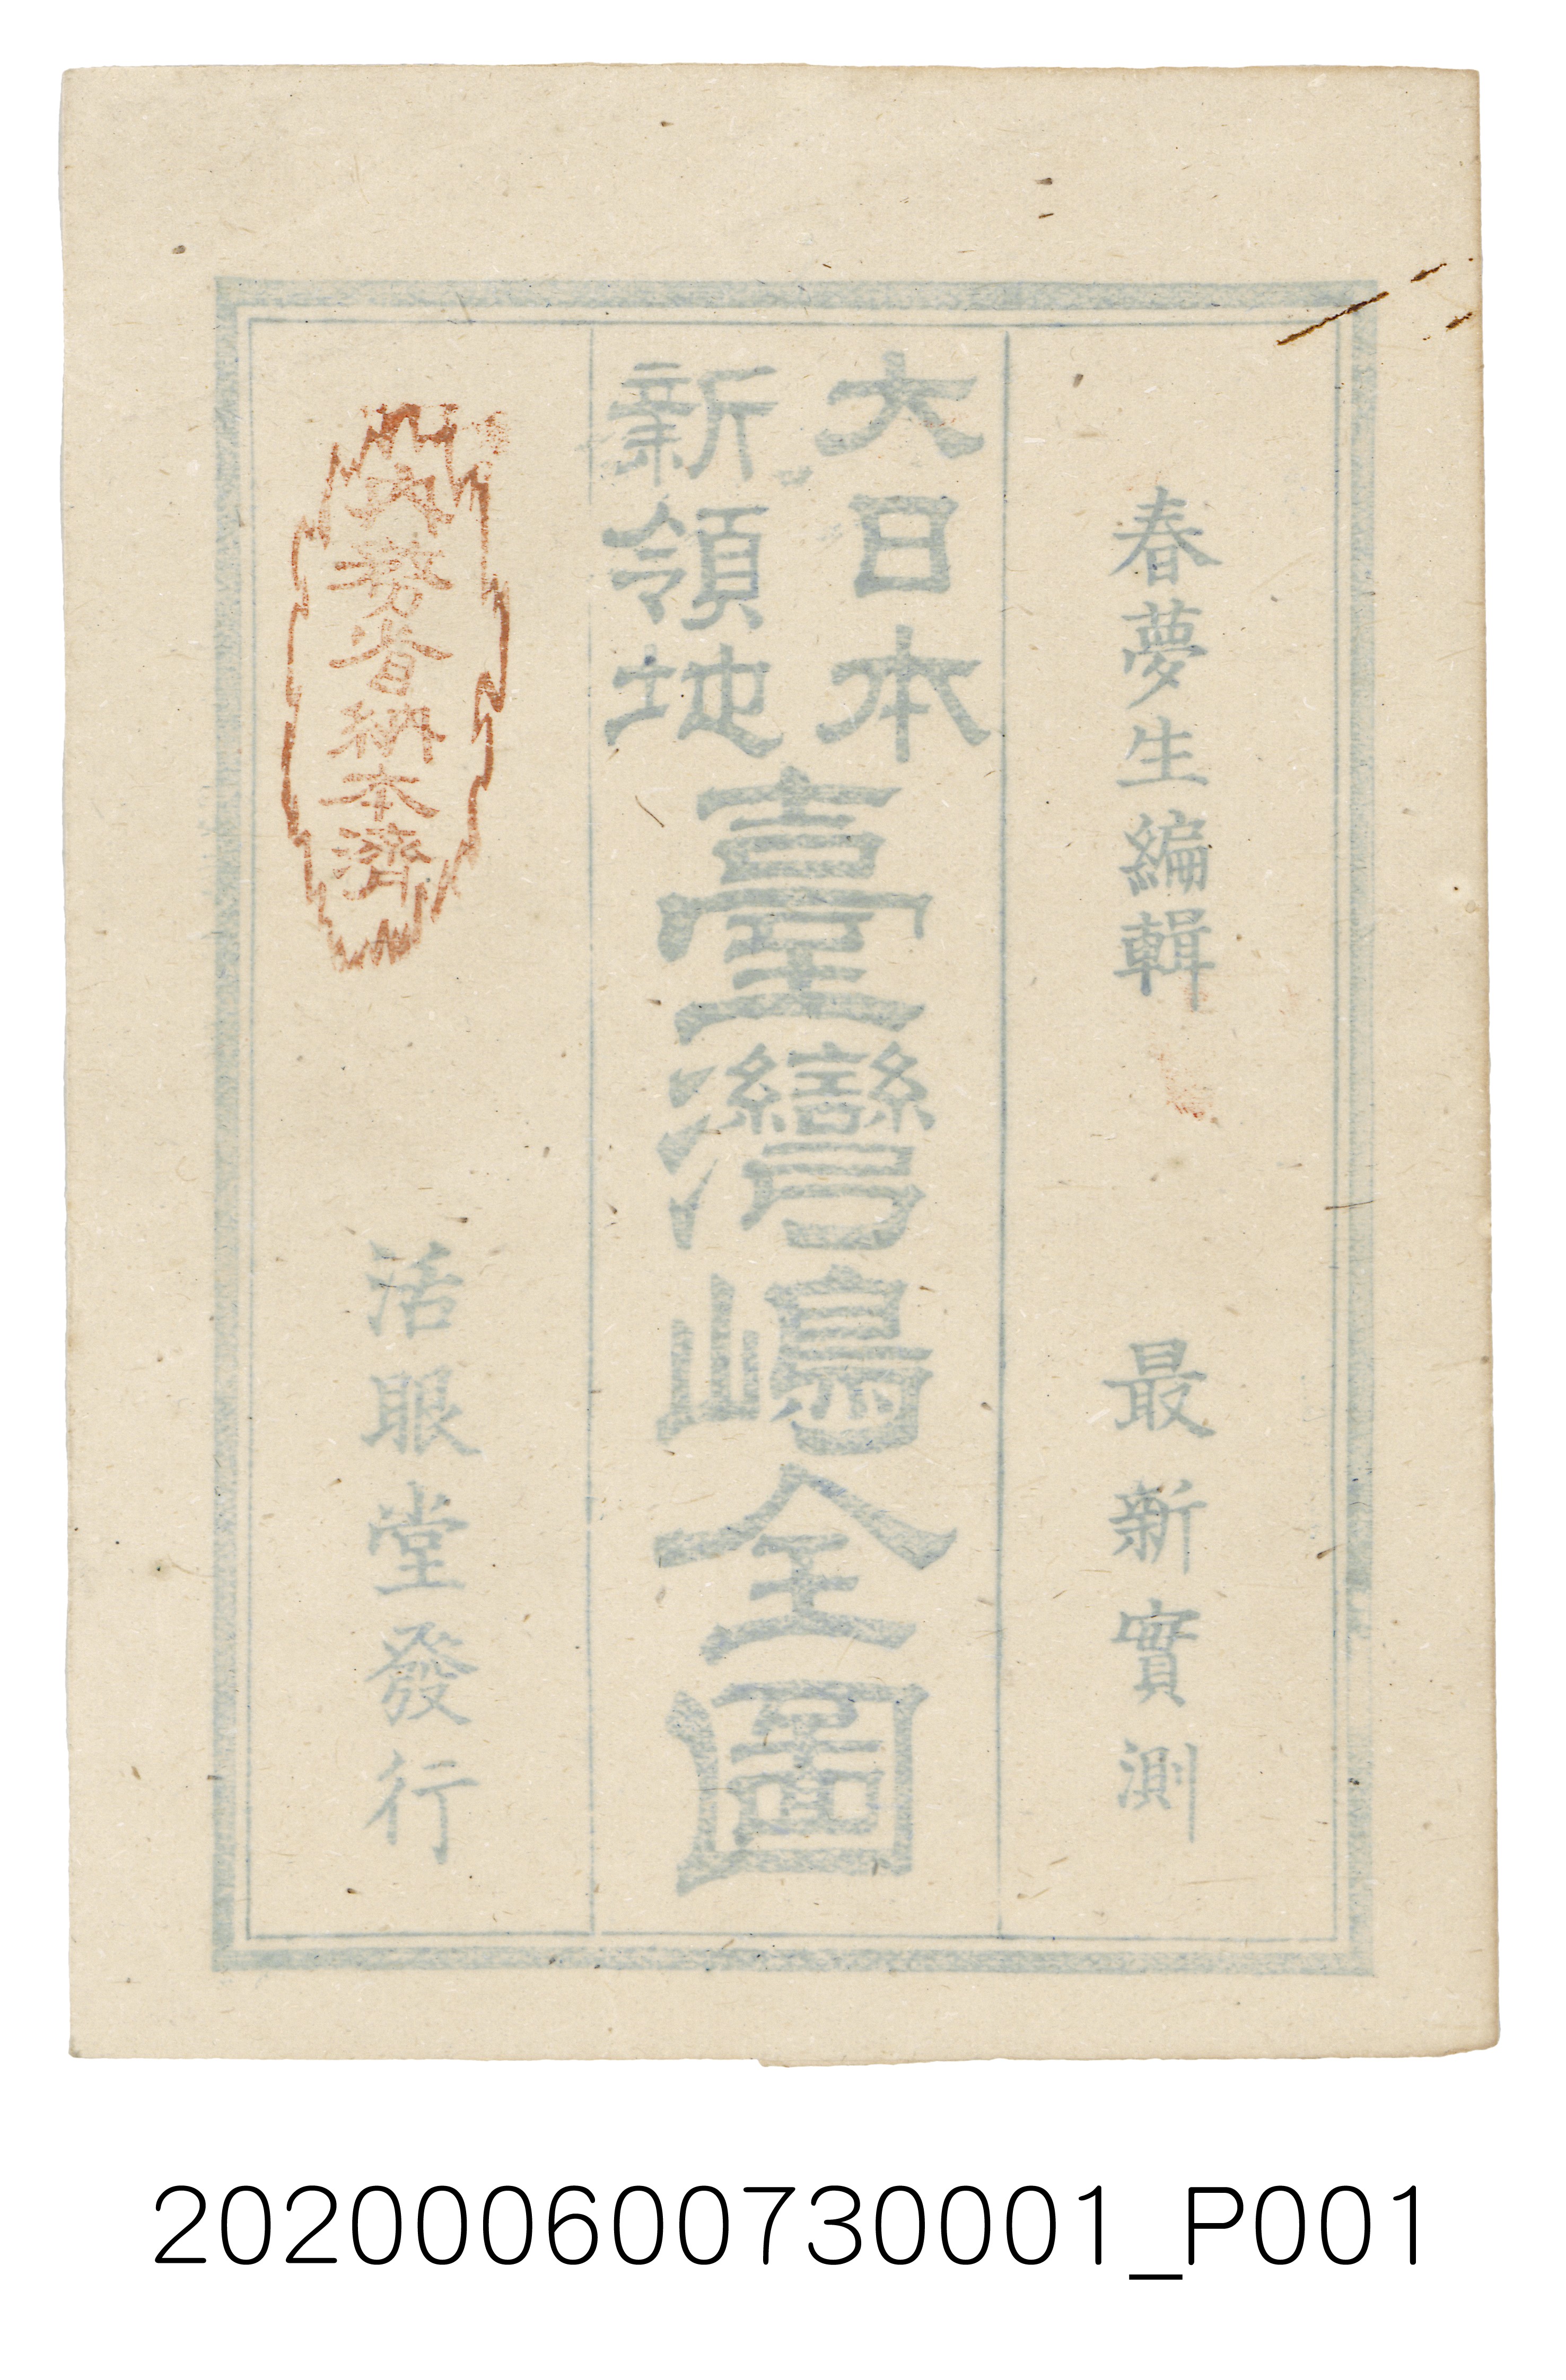 春夢生編輯 最新實測
大日本
新領地
臺灣嶋全圖
內務省納本濟
活眼堂發行
202000600730001_P001